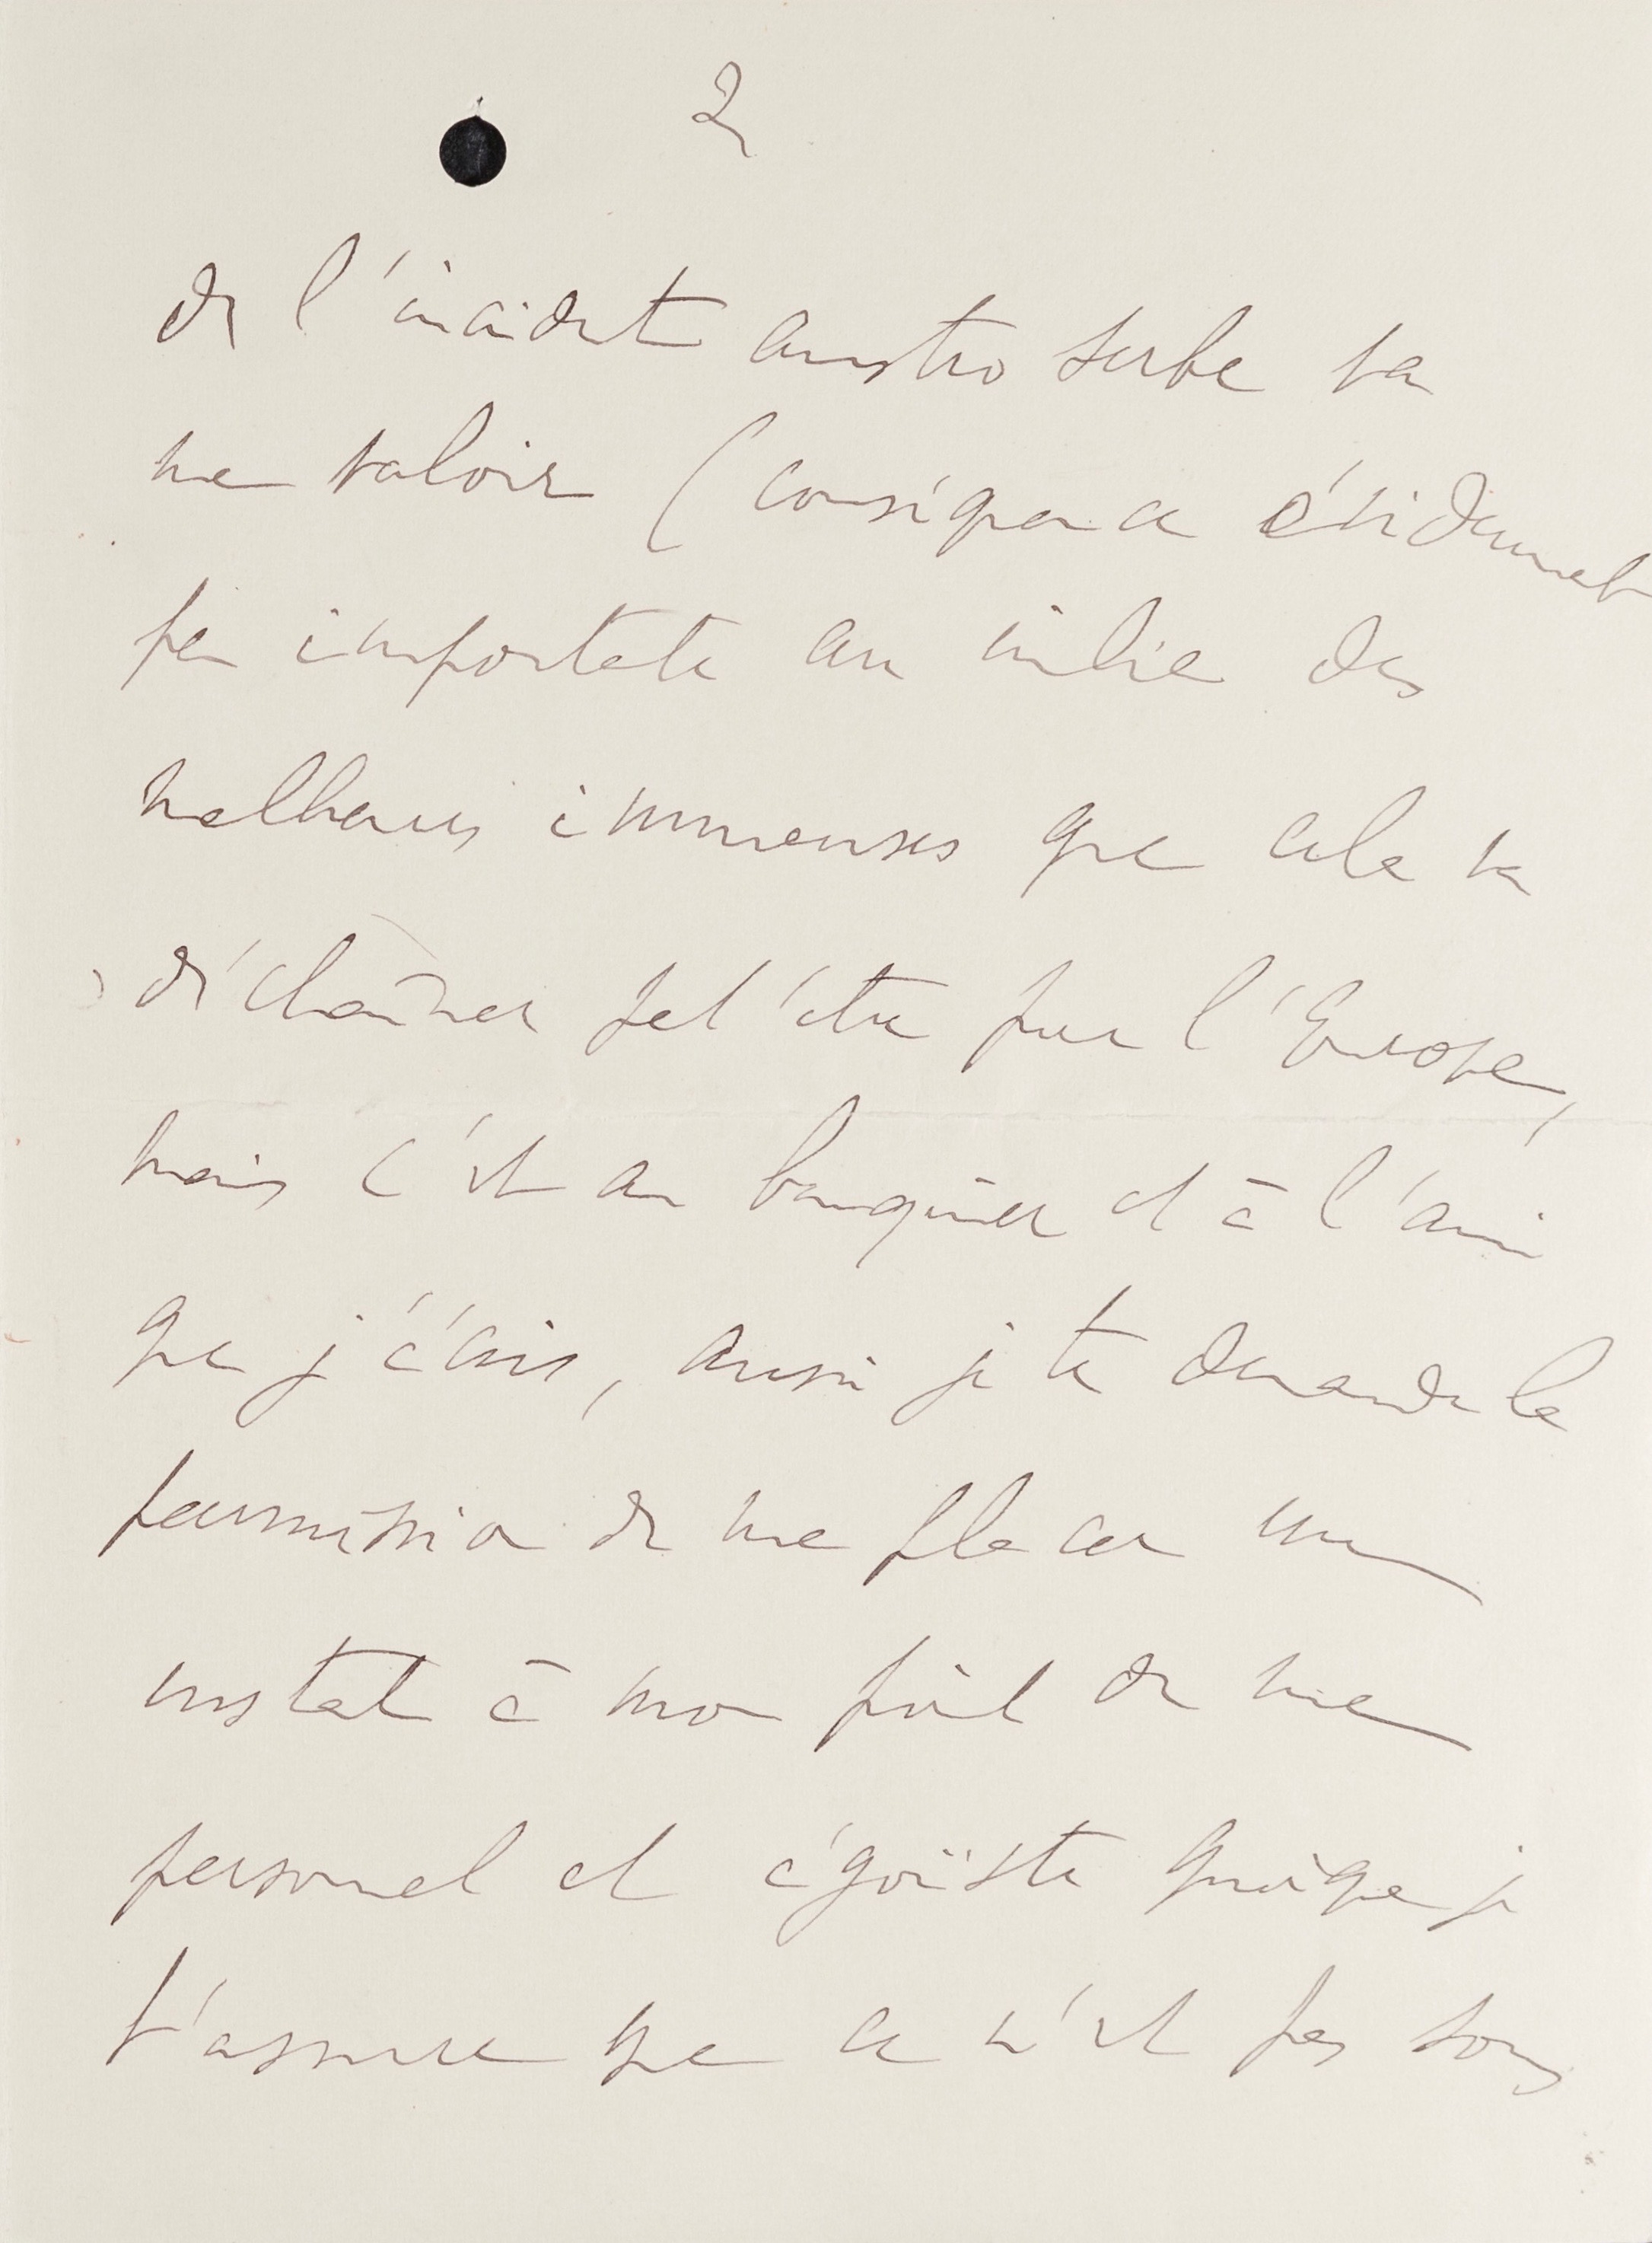 2
de l'incident austro serbe va
me valoir (conséquence évidemment
peu importante au milieu des
malheurs immenses que cela va
déchaîner peut'être sur l'Europe,
mais c'est au banquier et à l'ami
que j'écris, aussi je te demande la
permission de me placer un
instant à mon point de vue
personnel et égoïste quoique je
t'assure que ce n'est pas sous